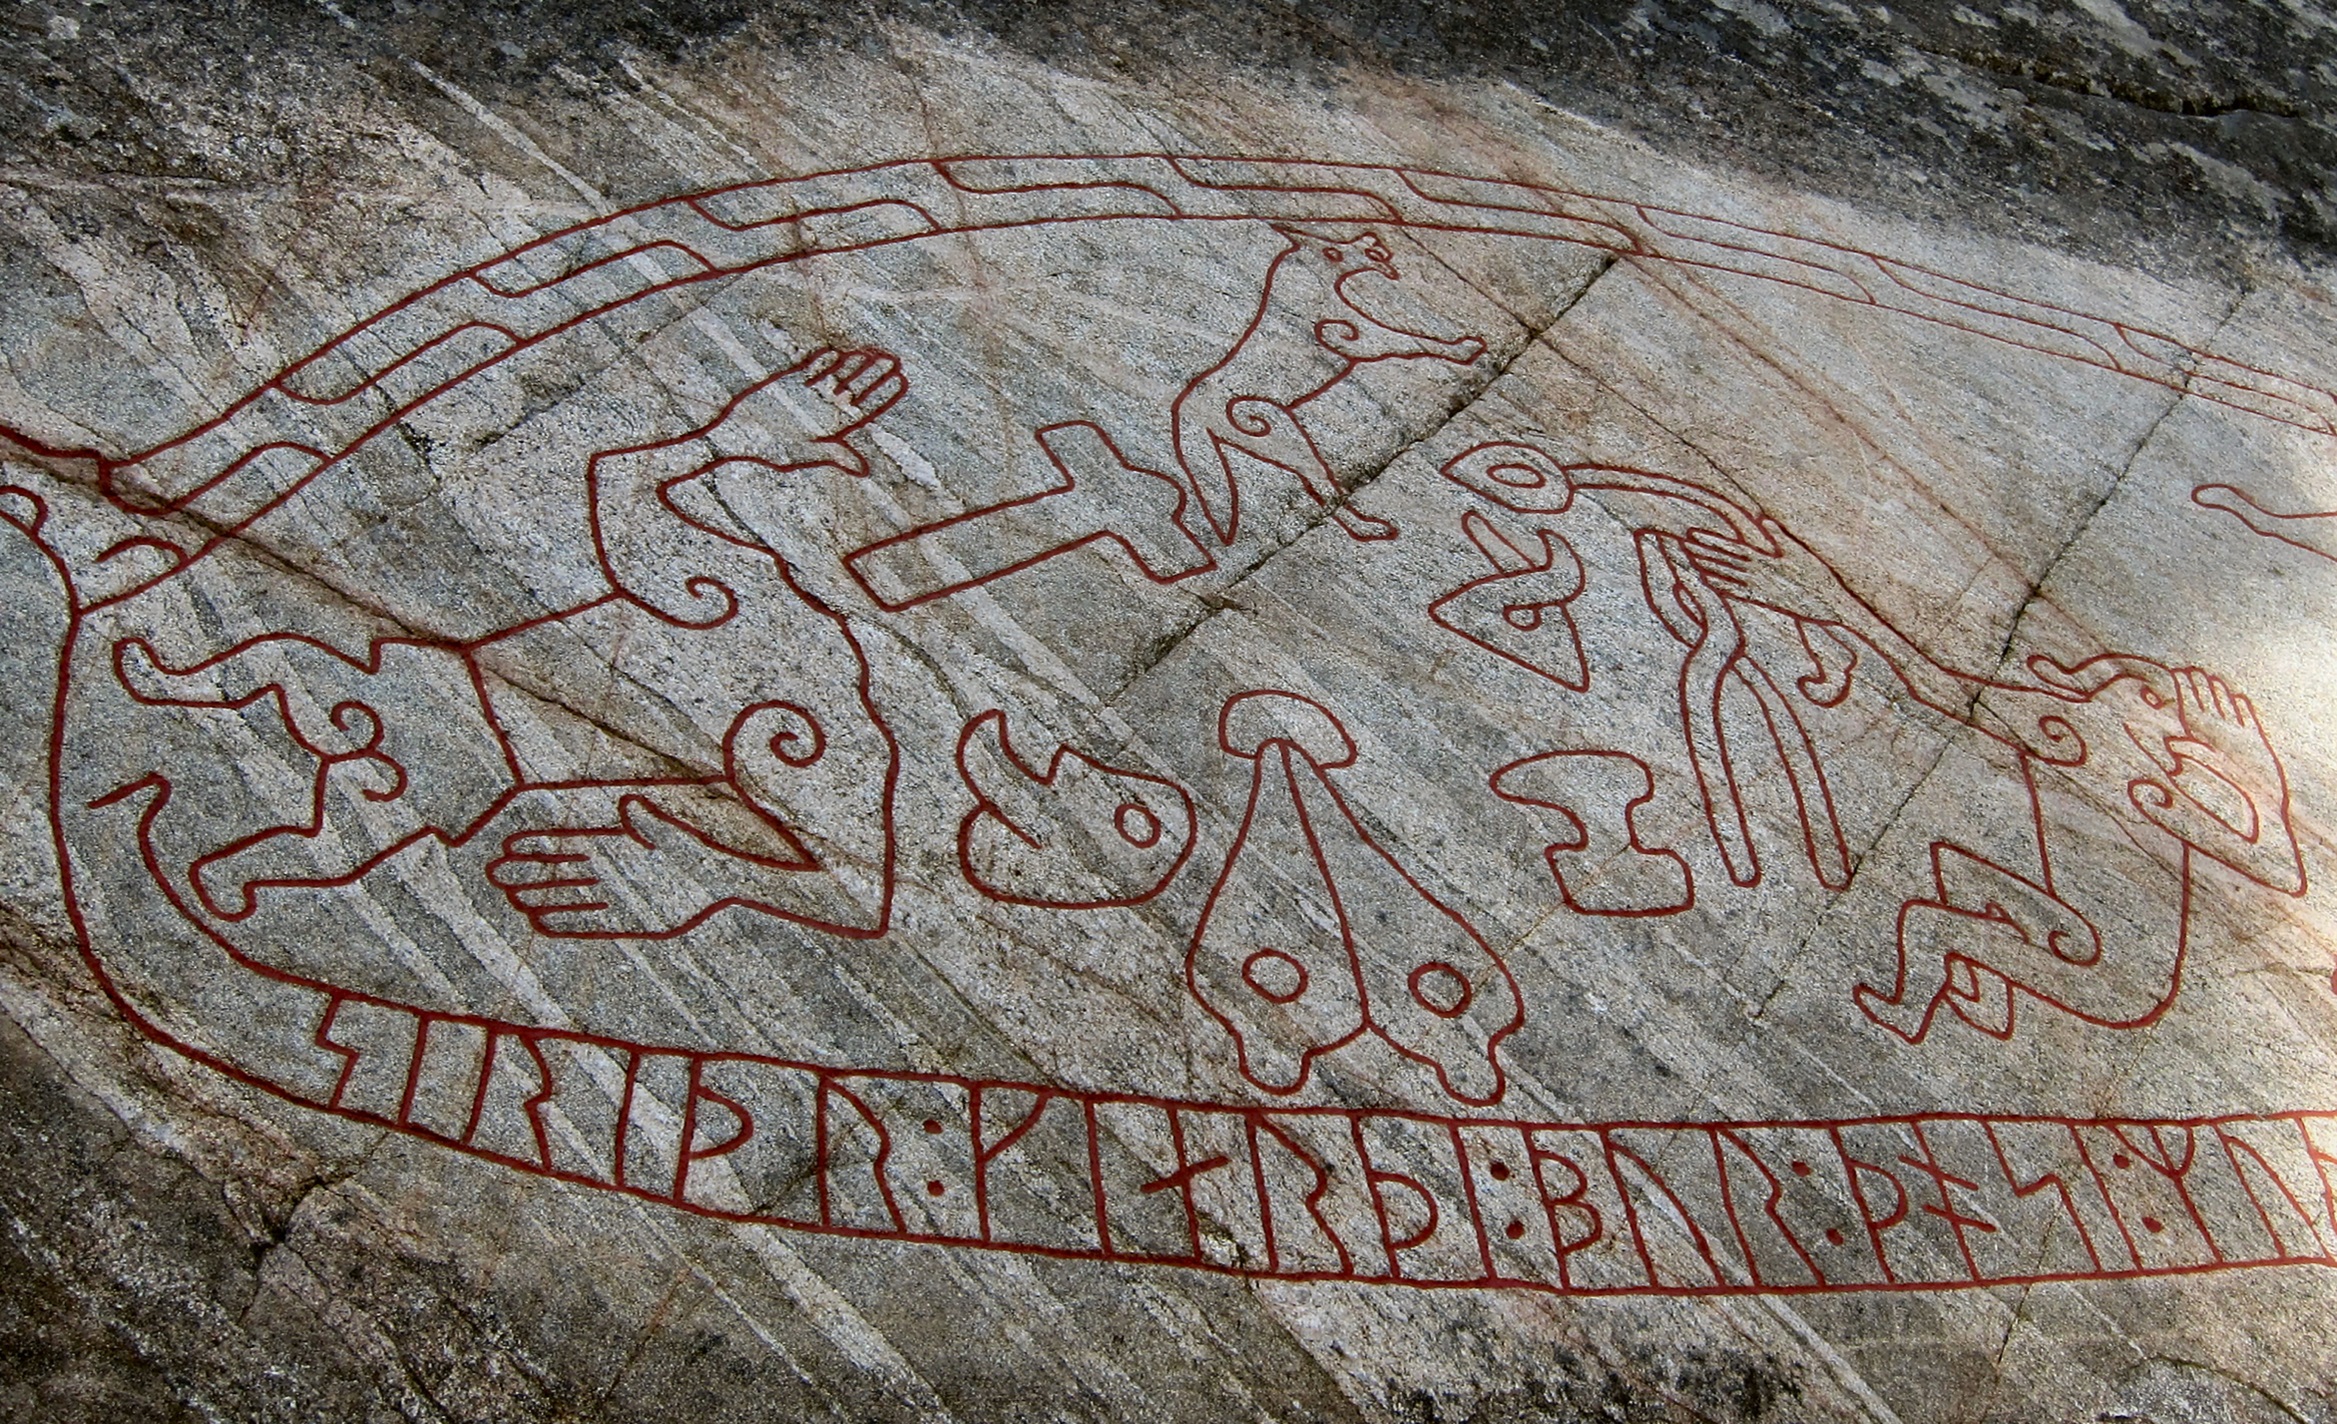 ᛋᛁᚱᛁᚦᚱ᛬ᚴᛁᛅᚱᚦᛁ᛬ᛒᚢᚱ᛬ᚦᚬᛋᛁ᛬ᛘᚢ